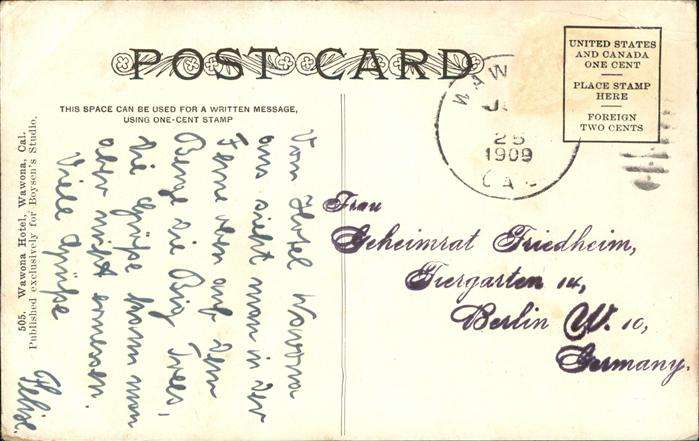 POST CARD
THIS SPACE CAN BE USED FOR A WRITTEN MESSAGE,
USING ONE-CENT STAMP
UNITED STATES
AND CANADA
ONE CENT
PLACE STAMP
HERE
FOREIGN
TWO CENTS
WAW
25
1909
CAL
505. Wawona Hotel, Wawona, Cal.
Published exclusively for Boysen's Studio.
Vom Hotel Wawona
aus sieht man in der
Ferne oben auf dem
Berge die Big Trees,
die Größe kann man
aber nicht ermessen.
Viele Grüße
Frau
Geheimrat Friedheim,
Tiergarten 14,
Berlin W. 10,
Germany.